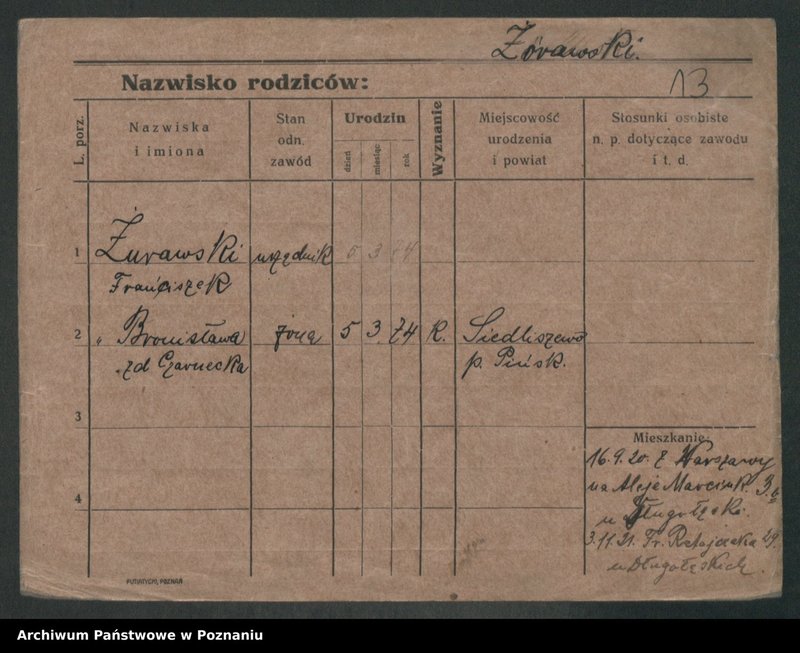 Żórawski.
Nazwisko rodziców:
13
L. porz.
Nazwiska
i imiona
Stan
odn.
zawód
Urodzin
dzień
miesiąc
rok
Wyznanie
Miejscowość
urodzenia
i powiat
Stosunki osobiste
n. p. dotyczące zawodu
i t. d.
1 Żurawski urzędnik 5 3 74
Franciszek
2 " Bronisława żona 5 3 74 K. Siedliszewo
zd Czarnecka p. Pińsk.
3
Mieszkanie:
16.9.20. z Warszawy
na Aleje Marcink. 3b
4
u Długołęcki.
3.11.21. Fr. Ratajczaka 29
u Długołęskich.
PUTIATYCKI, POZNAŃ
Archiwum Państwowe w Poznaniu